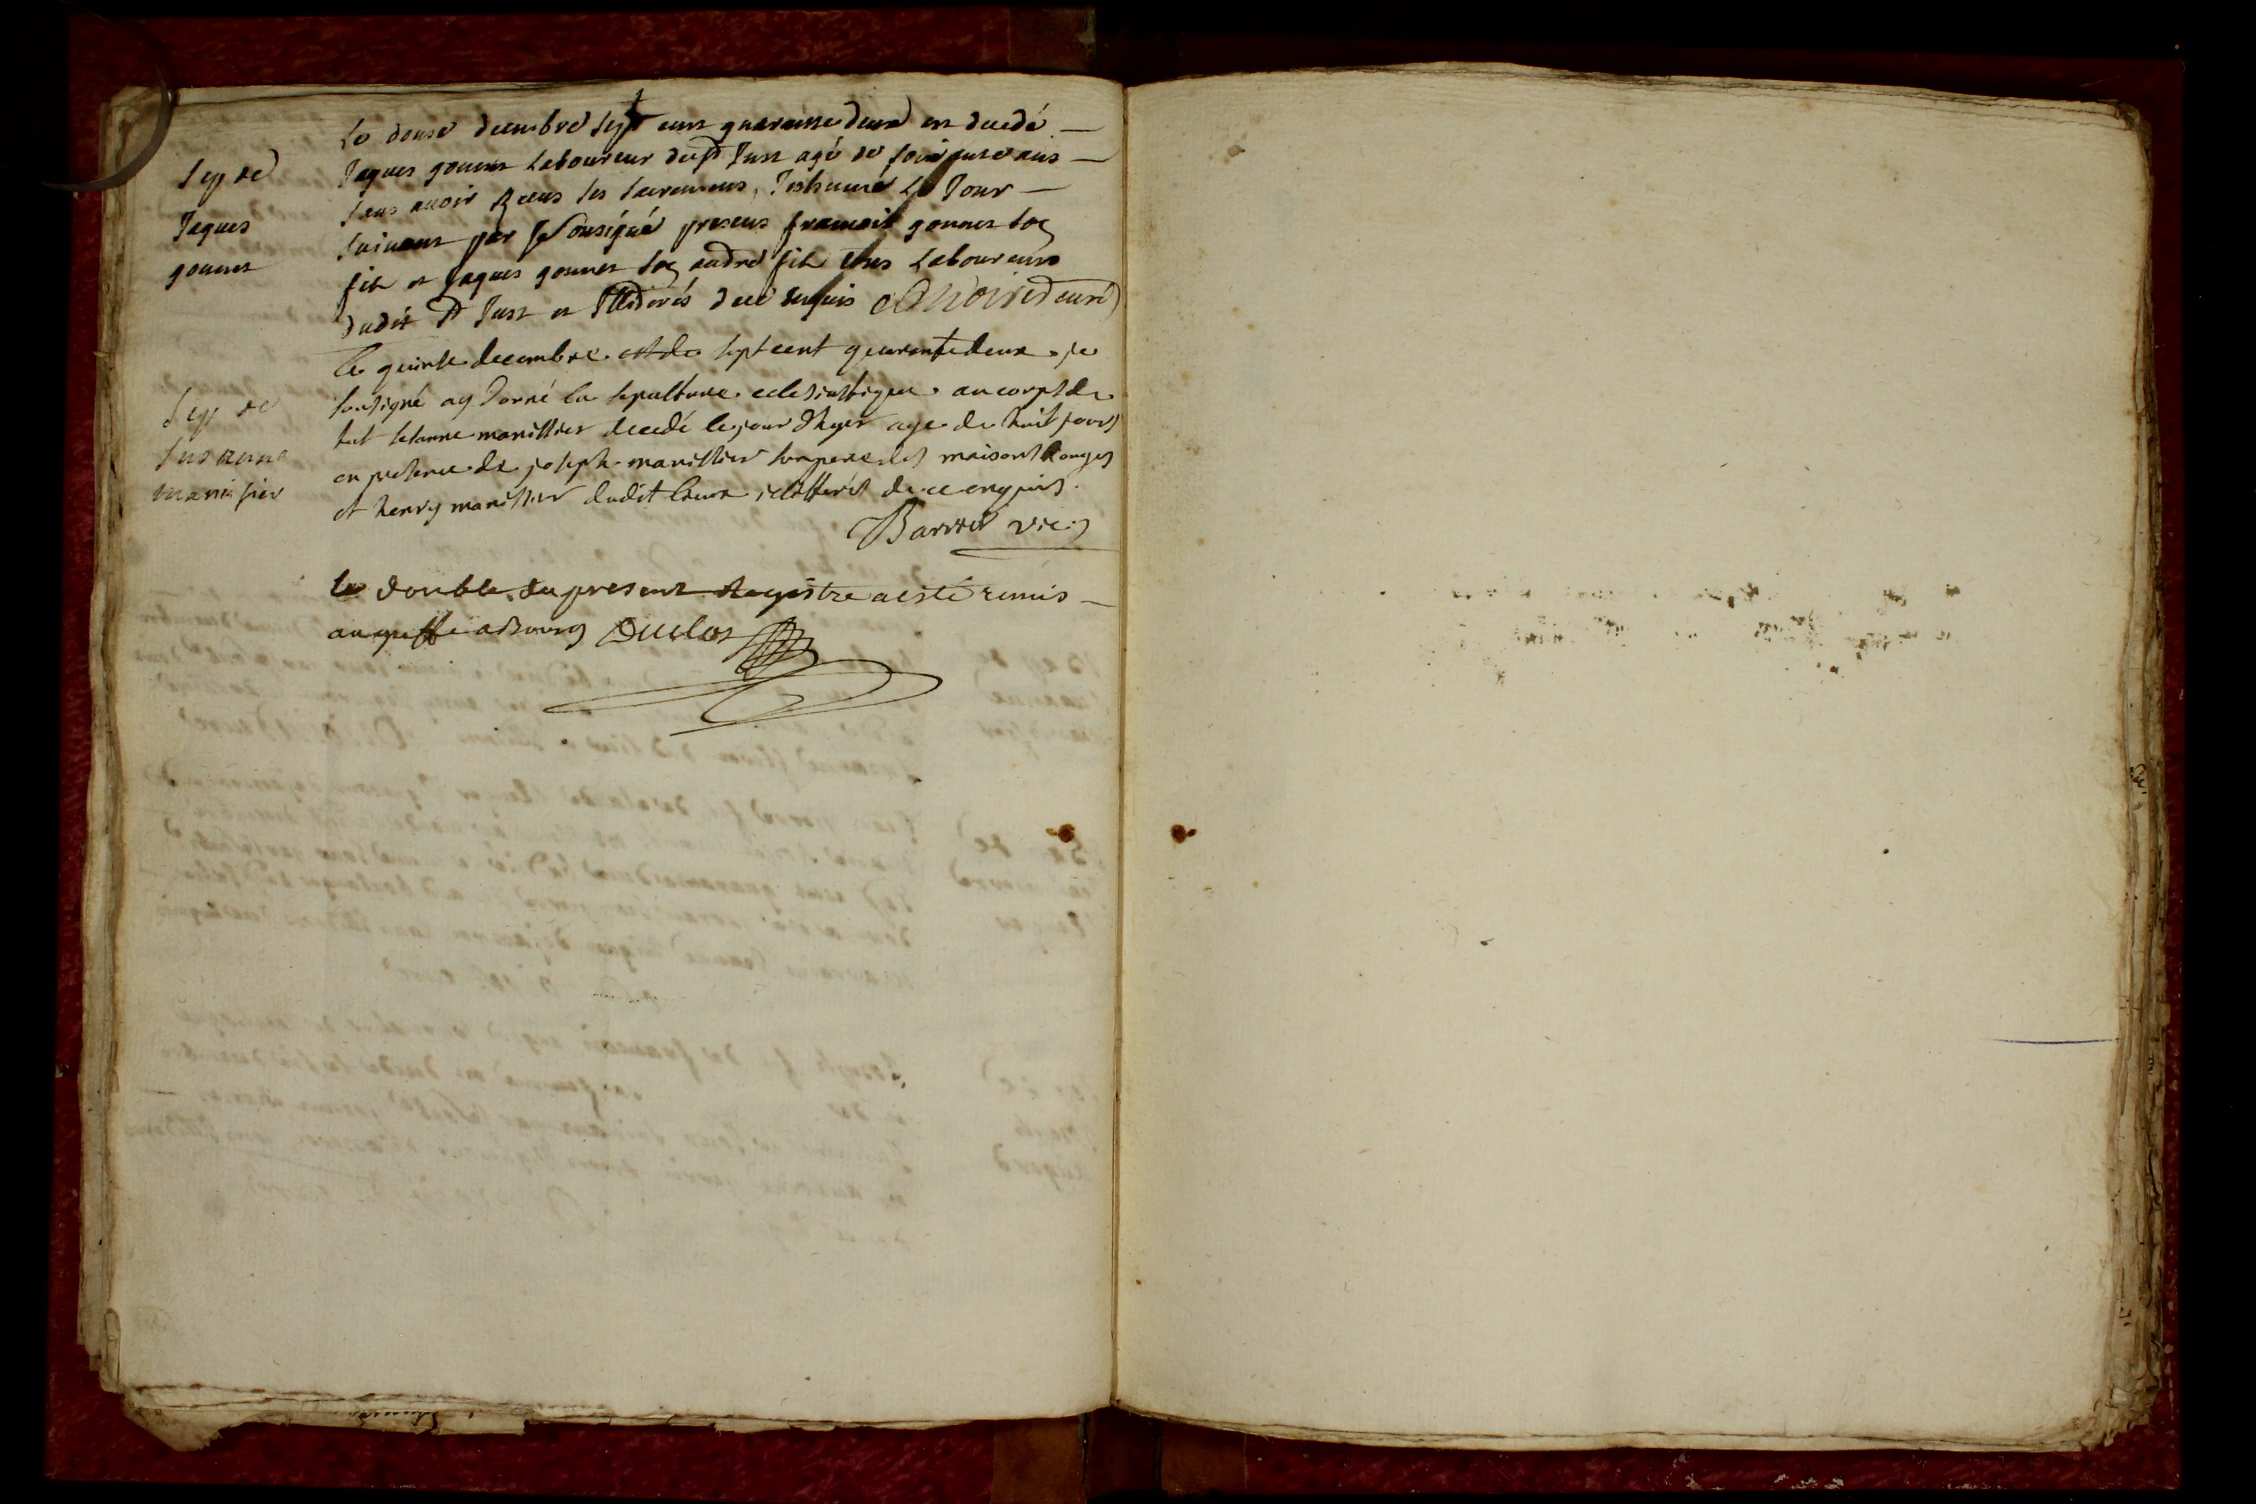 Sep de
Jaques
gonnet
Le douse decembre sept cent quarante deux est decedé
Jaques gonnet Laboureur de St Just agé de soixante ans
sans avoir Receus les sacremens, Inhumé Le Jour
suivant par Je sousigné presens francois gonnet son
fils et Jaques gonnet son fils tous Laboureurs
dudit St Just et Illiterés dece enquis curé
Sep de
Susanne
manissier
le quinse decembre sept cent quarante deux je
sousigné ay donné la sepulture eclesiastique au corps de
manissier decedé le jour d'hyer age de huit jours
en presence de joseph manissier son pere des maisons Rouges
et henry manissier dudit lieux illitterés de ce enquis.
vic.
le double du present Registre a esté remis
au greffe a Bourg Duclos